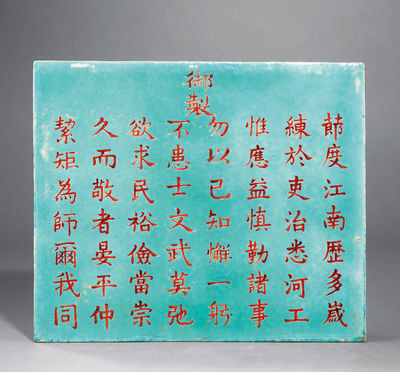 御製
節度江南歷多嵗
練於吏治悉河工
惟應益慎勤諸事
勿以已知懈一躬
不患士文武莫弛
欲求民裕儉當崇
久而敬者晏平仲
絜矩為師爾我同